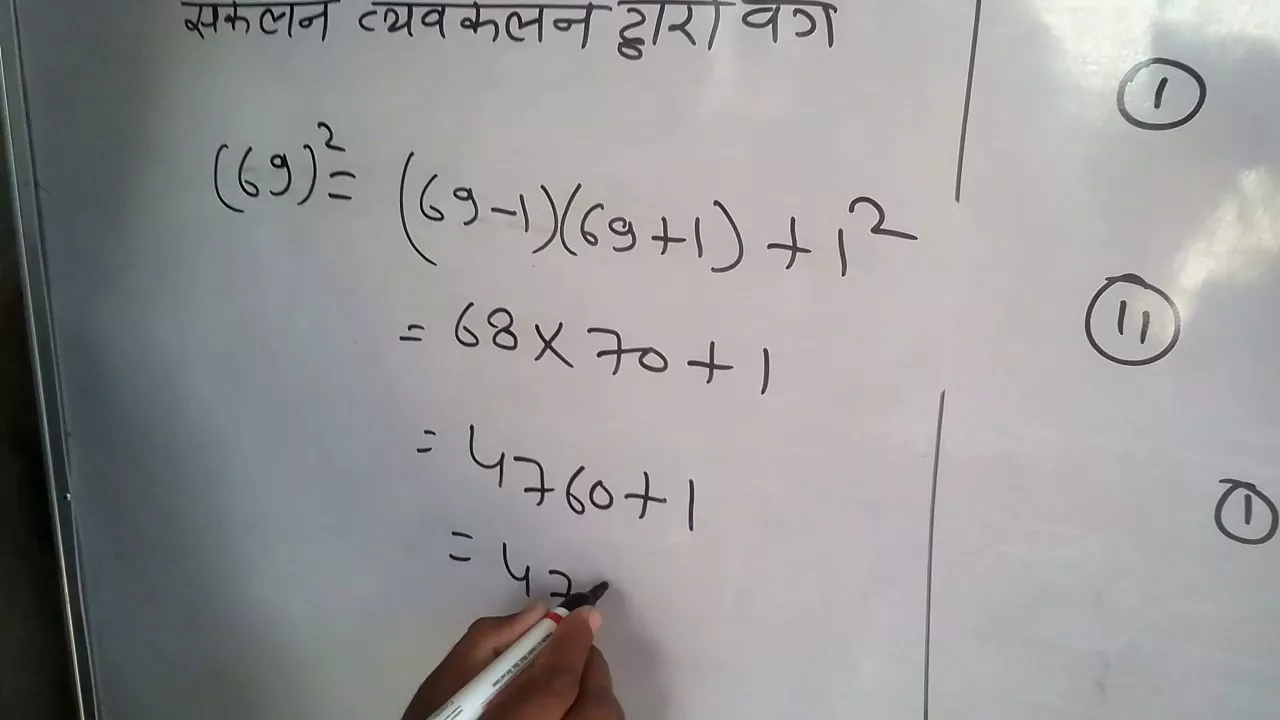 संकलन व्यवकलन द्वारा वर्ग
(69)² = (69-1)(69+1) + 1²
= 68 × 70 + 1
= 4760 + 1
= 47
I
II
I